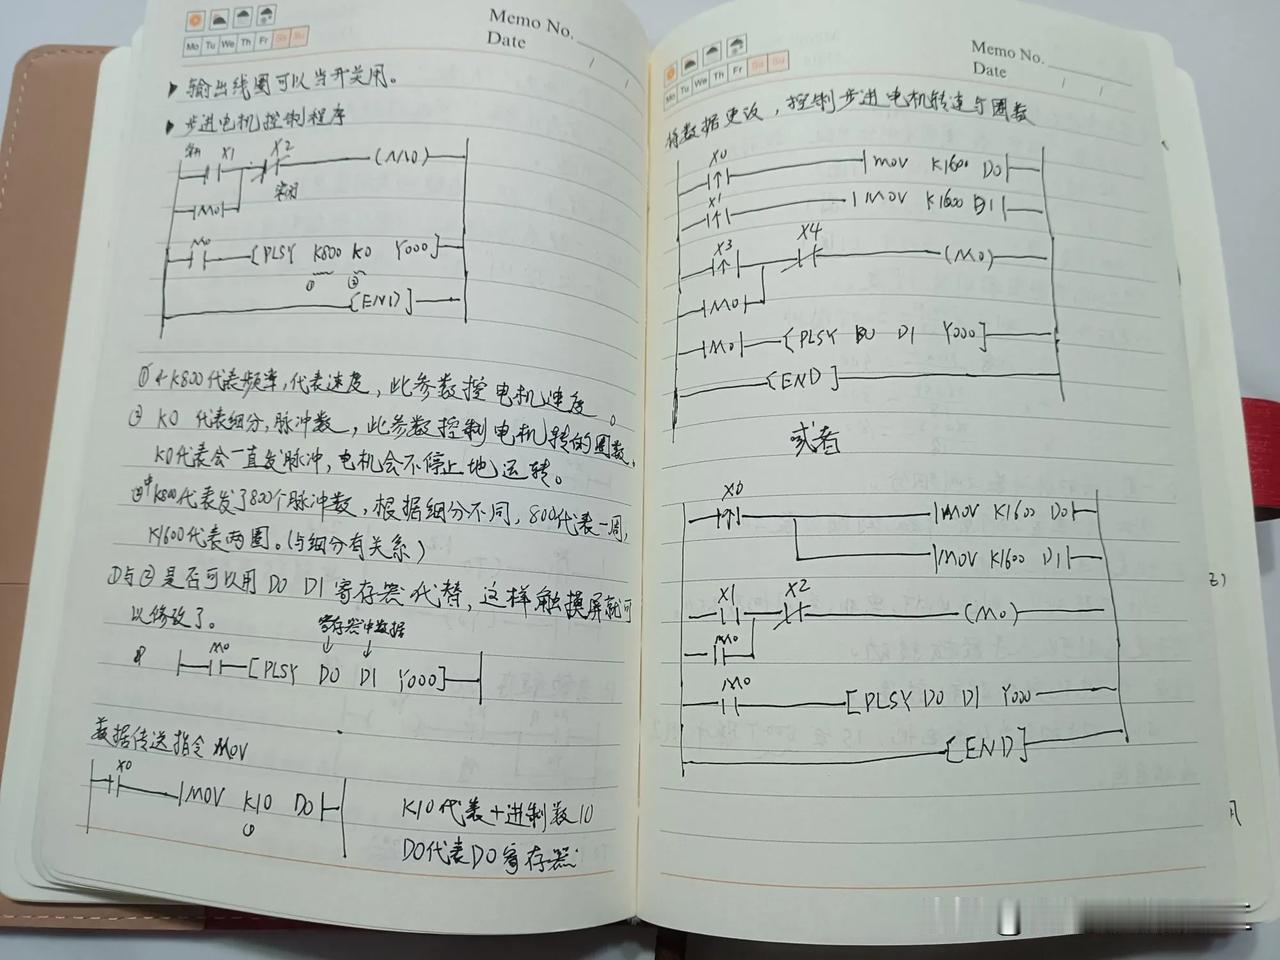 Memo No.
Date
Mo Tu We Th Fr Sa Su
▶ 输出线圈可以当开关用。
▶ 步进电机控制程序
X1 X2 (M0)
M0
M0 [PLSY K800 K0 Y000]
① ②
[END]
①个K800代表频率,代表速度,此参数控电机速度。
② K0 代表细分,脉冲数,此参数控制电机转的圈数。
K0代表会一直发脉冲,电机会不停止地运转。
K800代表发了800个脉冲数,根据细分不同,800代表一周,
K1600代表两圈。(与细分有关系)
①与②是否可以用 D0 D1 寄存器代替,这样触摸屏就可
以修改了。
寄存器中数据
M0 [PLSY D0 D1 Y000]
数据传送指令 MOV
X0
MOV K10 D0
①
K10代表十进制数10
D0代表D0寄存器
Memo No.
Date
Mo Tu We Th Fr Sa Su
将数据更改,控制步进电机转速与圈数
X0 MOV K1600 D0
X1 MOV K1600 D1
X3 X4 (M0)
M0
M0 [PLSY D0 D1 Y000]
[END]
或者
X0 MOV K1600 D0
MOV K1600 D1
X1 X2 (M0)
M0
M0 [PLSY D0 D1 Y000
[END]